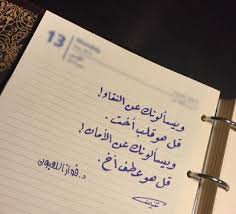 13
ويسألونك عن النقاء!
قل هو قلب أخت.
ويسألونك عن الأمان!
قل هو عطف أخ.
د. فواز اللعبون